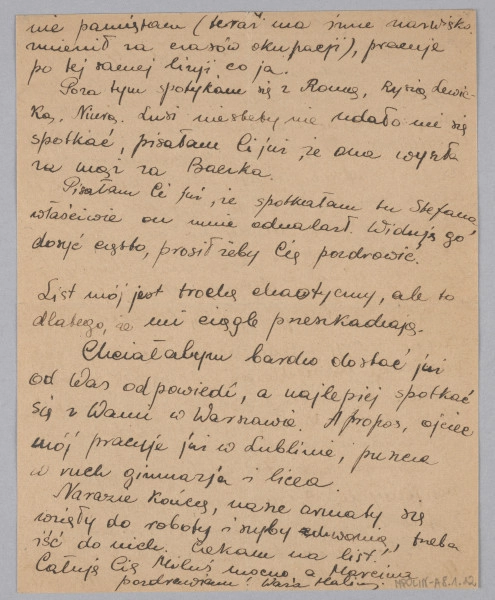 nie pamiętam (teraz ma inne nazwisko,
zmienił za czasów okupacji), pracuje
po tej samej linji co ja.
Poza tym spotykam się z Romą, Rysią Lewic-
ką, Niusią. Lusi niestety nie udało mi się
spotkać, pisałam Ci już, że ona wyszła
za mąż za Baerka.
Pisałam Ci już, że spotkałam tu Stefana,
właściwie on mnie odnalazł. Widuję go
dosyć często, prosił żeby Cię pozdrowić.
List mój jest trochę chaotyczny, ale to
dlatego, że mi ciągle przeszkadzają.
Chciałabym bardzo dostać już
od Was odpowiedź, a najlepiej spotkać
się z Wami w Warszawie. A propos, ojciec
mój pracuje już w Lublinie, puszcza
w ruch gimnazja i licea.
Narazie kończę, nasze armaty się
wzięły do roboty i szyby dzwonią, trzeba
iść do nich. Czekam na list.
Całuję Cię Miluś mocno a Marcina
pozdrawiam! Wasza Halina